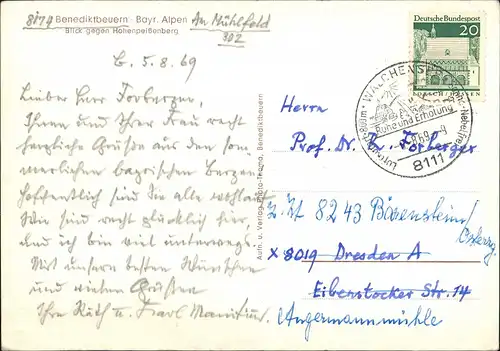 8174 Benediktbeuern · Bayr. Alpen An Mühlfeld
Blick gegen Hohenpeißenberg 302
B. 5.8.69
Lieber Herr Forberger,
Ihnen und Ihrer Frau recht
herzliche Grüße aus den som-
merlichen bayrischen Bergen.
Hoffentlich sind Sie alle wohlauf.
Wir sind recht glücklich hier,
und ich bin viel unterwegs.
Mit unsern besten Wünschen
und vielen Grüßen
Ihre Ruth u.
Aufn. u. Verlag Benediktbeuern
Deutsche Bundespost
20
LORSCH / HESSEN
WALCHENSEE
Ruhe und Erholung
8111
Herrn
Prof. Dr. R. Forberger
z. Zt 8243 Bärenstein/
Osterzg.
x 8019 Dresden A
Eibenstocker Str. 14
(Angermannmühle